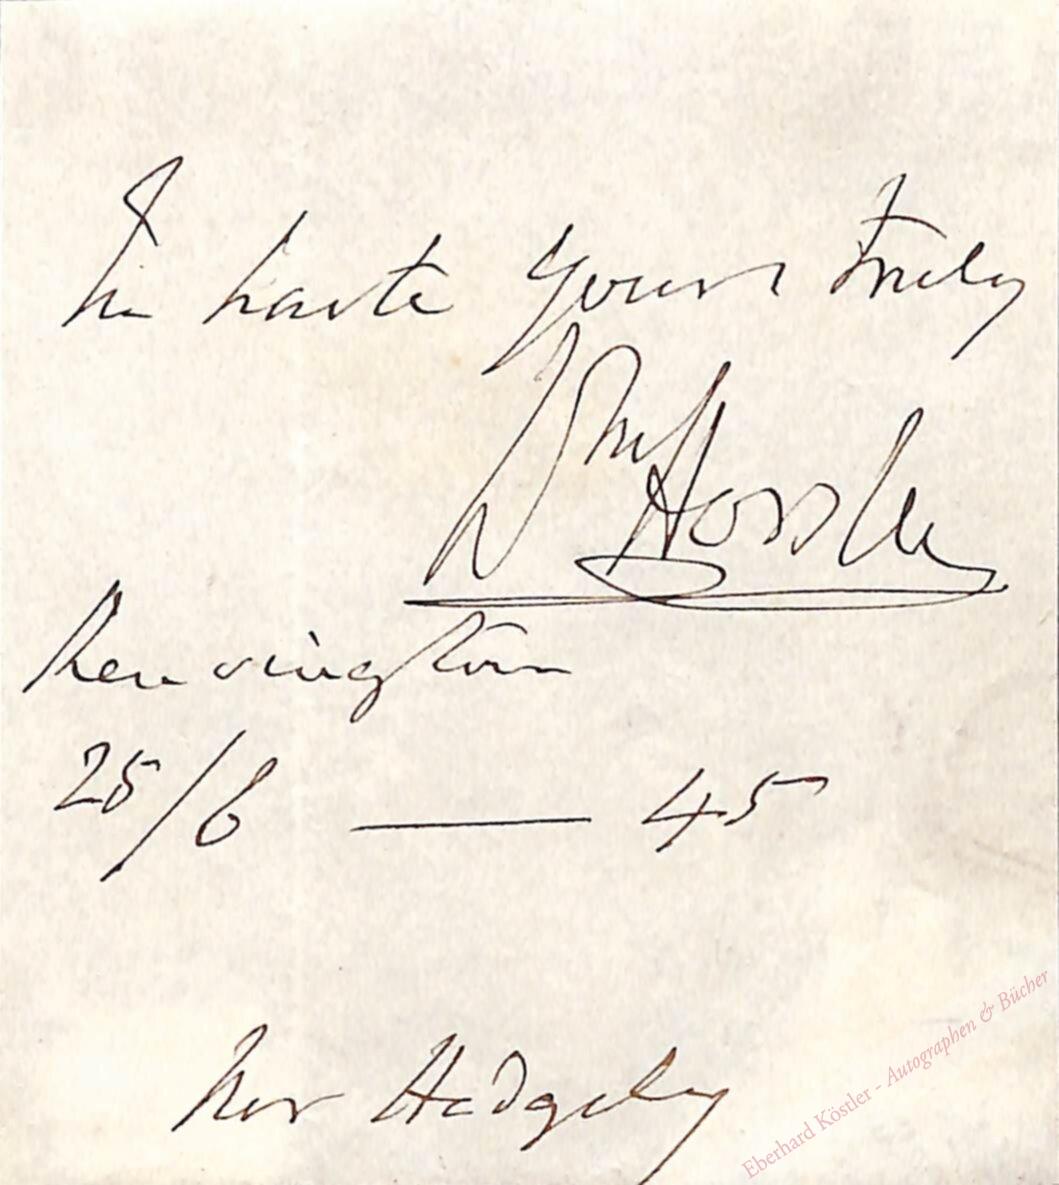 In haste Yours Truly
Wm Hossley
Kensington
25/6 — 45
Mrs Hedgeley
Eberhard Köstler - Autographen & Bücher